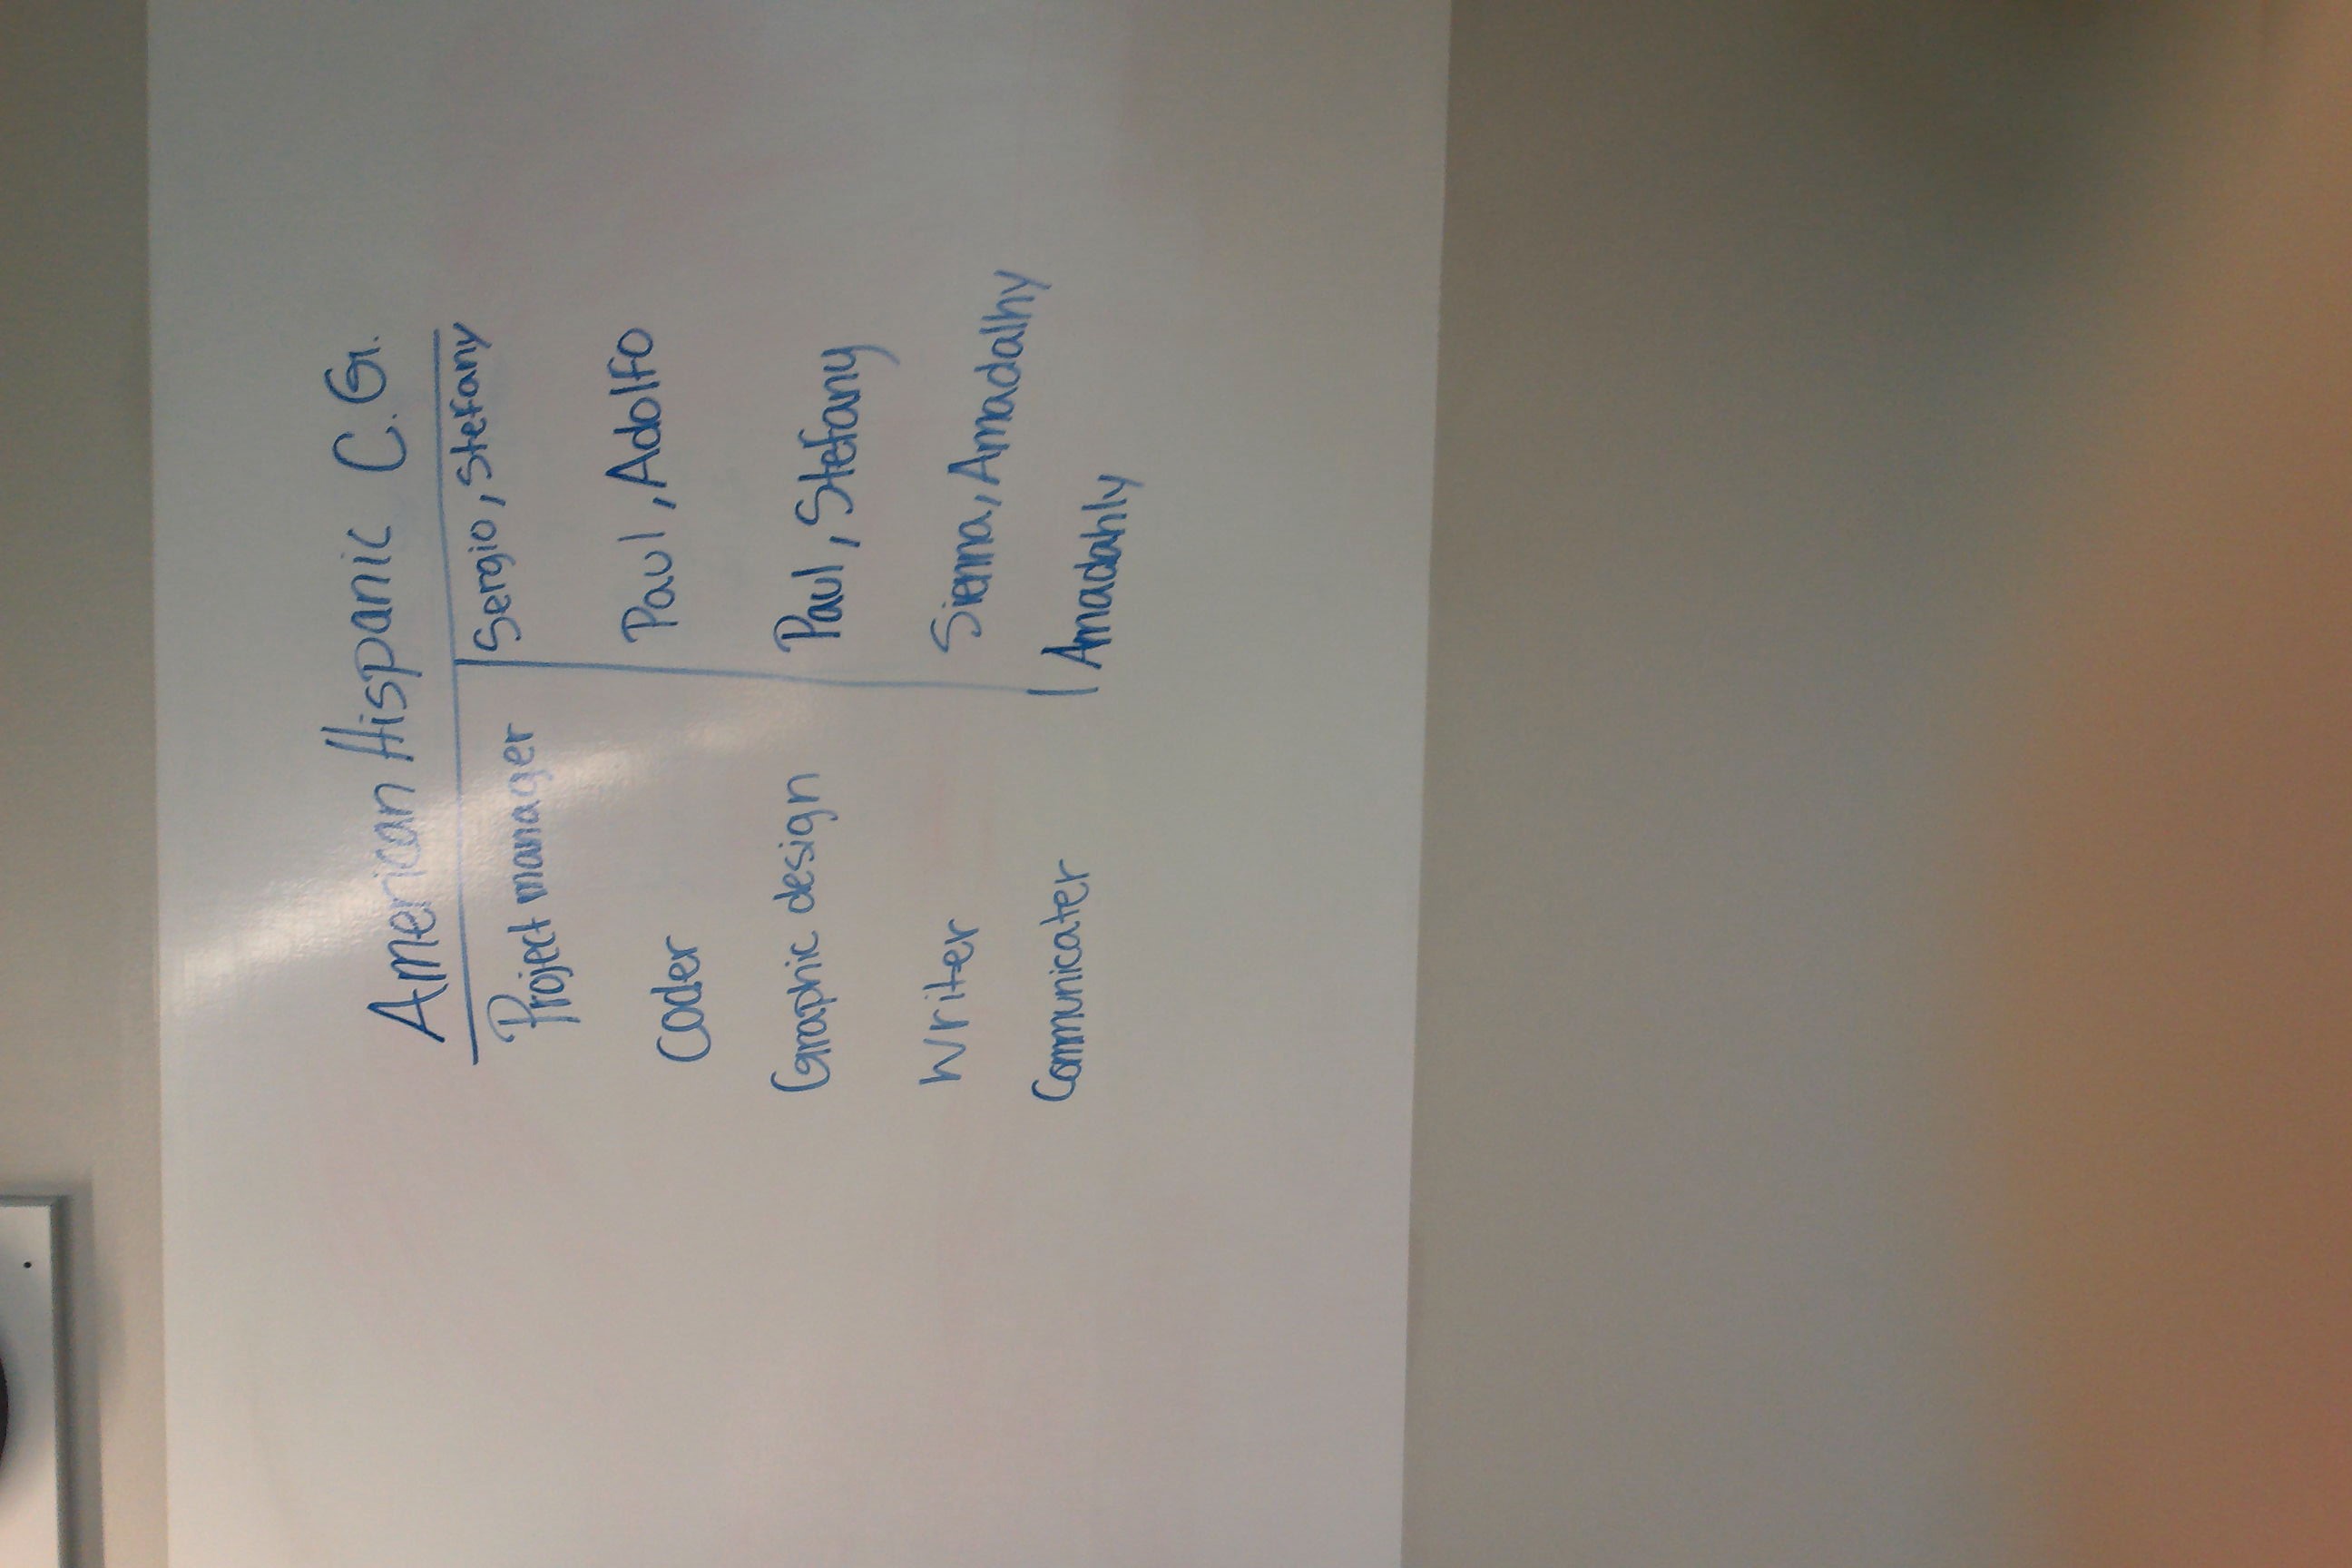 American Hispanic C.G.
Project manager Sergio, Stefany
Coder Paul, Adolfo
Graphic design Paul, Stefany
Writer Sienna, Amadalhy
Communicater Amadahly